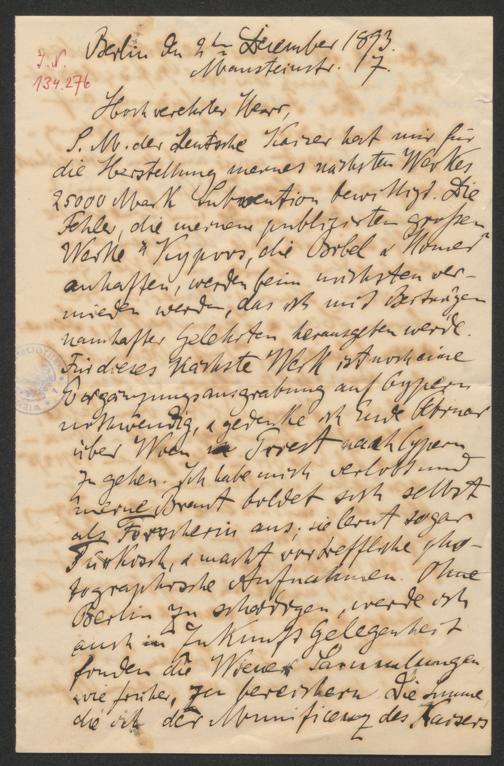 Berlin den 2ten Dezember 1893.
Mansteinstr. 7.
I.N.
134.276
Hochverehrter Herr,
S. M. der Deutsche Kaiser hat mir für
die Herstellung meines nächsten Werkes
25000 Mark Subvention bewilligt. Die
Fehler, die meinem publizirten grossen
Werke "Kypros, die Bibel u Homer"
anhaften, werden beim nächsten ver-
mieden werden, das ich mit Beiträgen
namhafter Gelehrten herausgeben werde.
Für dieses nächste Werk ist noch eine
Ergänzungsausgrabung auf Cypern
nothwendig, u gedenke ich Ende Februar
über Wien Triest nach Cypern
zu gehen. Ich habe mich verlobt und
meine Braut bildet sich selbst
als Forscherin aus; sie lernt sogar
Türkisch, u macht vortreffliche pho-
tographische Aufnahmen. Ohne
Berlin zu schädigen, werde ich
auch in Zukunft Gelegenheit
finden die Wiener Sammlungen
wie früher, zu bereichern. Die Summe
die ich der Munificenz des Kaisers